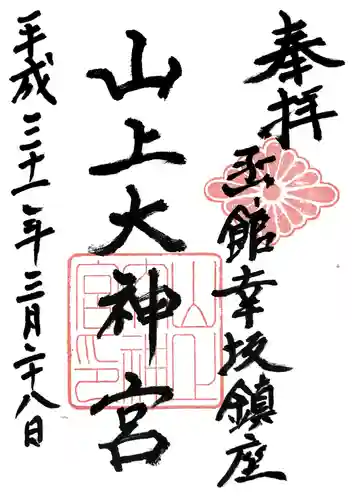 奉拝
函館幸坂鎮座
山上大神宮
平成三十一年三月二十八日